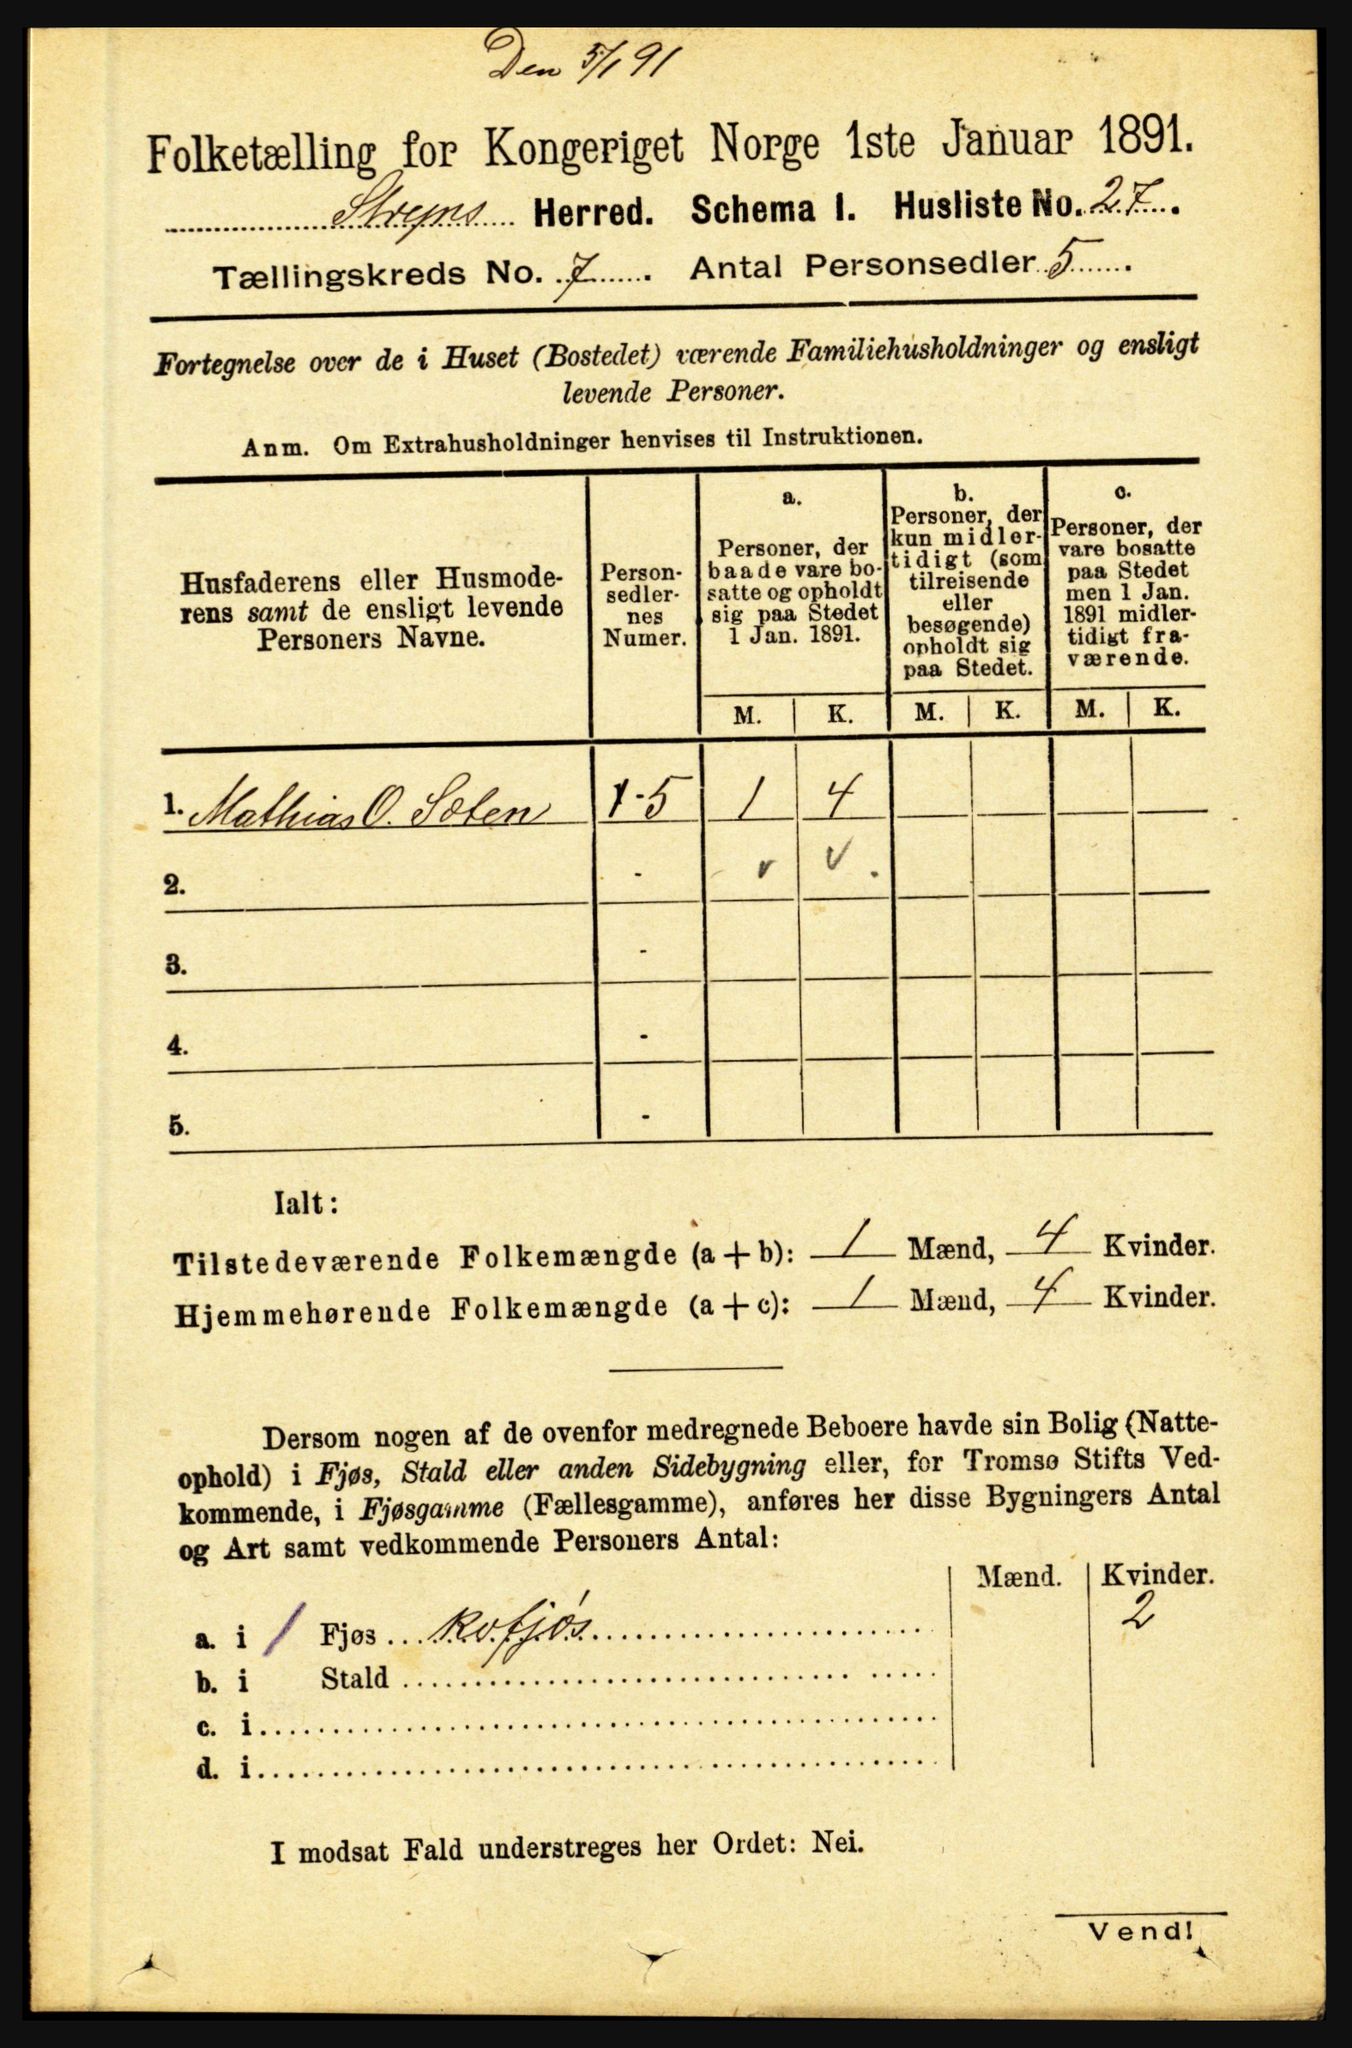 Den 5/1 91
Folketælling for Kongeriget Norge 1ste Januar 1891.
Stryns Herred. Schema I. Husliste No. 27.
Tællingskreds No. 7. Antal Personsedler 5.
Fortegnelse over de i Huset (Bostedet) værende Familiehusholdninger og ensligt
levende Personer.
Anm. Om Extrahusholdninger henvises til Instruktionen.
Husfaderens eller Husmode-
rens samt de ensligt levende
Personers Navne.
Person-
sedler-
nes
Numer.
a.
Personer, der
baade vare bo-
satte og opholdt
sig paa Stedet
1 Jan. 1891.
b.
Personer, der
kun midler-
tidigt (som
tilreisende
eller
besøgende)
opholdt sig
paa Stedet.
c.
Personer, der
vare bosatte
paa Stedet
men 1 Jan.
1891 midler-
tidigt fra-
værende.
M. K. M. K. M. K.
1. Mathias O. Sæten 1-5 1 4
2. - v v
3. -
4. -
5. -
Ialt:
Tilstedeværende Folkemængde (a + b): 1 Mænd, 4 Kvinder.
Hjemmehørende Folkemængde (a + c): 1 Mænd, 4 Kvinder.
Dersom nogen af de ovenfor medregnede Beboere havde sin Bolig (Natte-
ophold) i Fjøs, Stald eller anden Sidebygning eller, for Tromsø Stifts Ved-
kommende, i Fjøsgamme (Fællesgamme), anføres her disse Bygningers Antal
og Art samt vedkommende Personers Antal:
Mænd. Kvinder.
a. i 1 Fjøs Kofjøs 2
b. i Stald
c. i
d. i
I modsat Fald understreges her Ordet: Nei.
Vend!